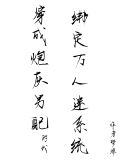 穿成炮灰男配
绑定万人迷系统
作者